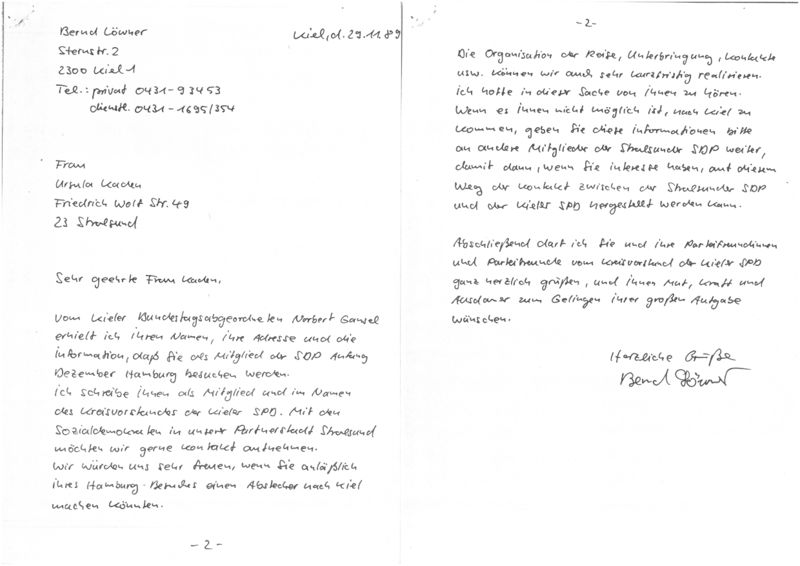 Bernd Löwner
Kiel, d. 29.11.89
Sternstr. 2
2300 Kiel 1
Tel.: privat 0431-93453
dienstl. 0431-1695/354
Frau
Ursula Kaden
Friedrich Wolf Str. 49
23 Stralsund
Sehr geehrte Frau Kaden,
vom Kieler Bundestagsabgeordneten Norbert Gansel
erhielt ich ihren Namen, ihre Adresse und die
Information, daß Sie als Mitglied der SDP Anfang
Dezember Hamburg besuchen werden.
Ich schreibe ihnen als Mitglied und im Namen
des Kreisvorstandes der Kieler SPD. Mit den
Sozialdemokraten in unserer Partnerstadt Stralsund
möchten wir gerne Kontakt aufnehmen.
Wir würden uns sehr freuen, wenn Sie anläßlich
ihres Hamburg-Besuches einen Abstecher nach Kiel
machen könnten.
-2-
-2-
Die Organisation der Reise, Unterbringung, Kontakte
usw. können wir auch sehr kurzfristig realisieren.
Ich hoffe in dieser Sache von ihnen zu hören.
Wenn es ihnen nicht möglich ist, nach Kiel zu
kommen, geben Sie diese Informationen bitte
an andere Mitglieder der Stralsunder SDP weiter,
damit dann, wenn Sie Interesse haben, auf diesem
Weg der Kontakt zwischen der Stralsunder SDP
und der Kieler SPD hergestellt werden kann.
Abschließend darf ich Sie und ihre Parteifreundinnen
und Parteifreunde vom Kreisvorstand der Kieler SPD
ganz herzlich grüßen, und ihnen Mut, Kraft und
Ausdauer zum Gelingen ihrer großen Aufgabe
wünschen.
Herzliche Grüße
Bernd Löwner